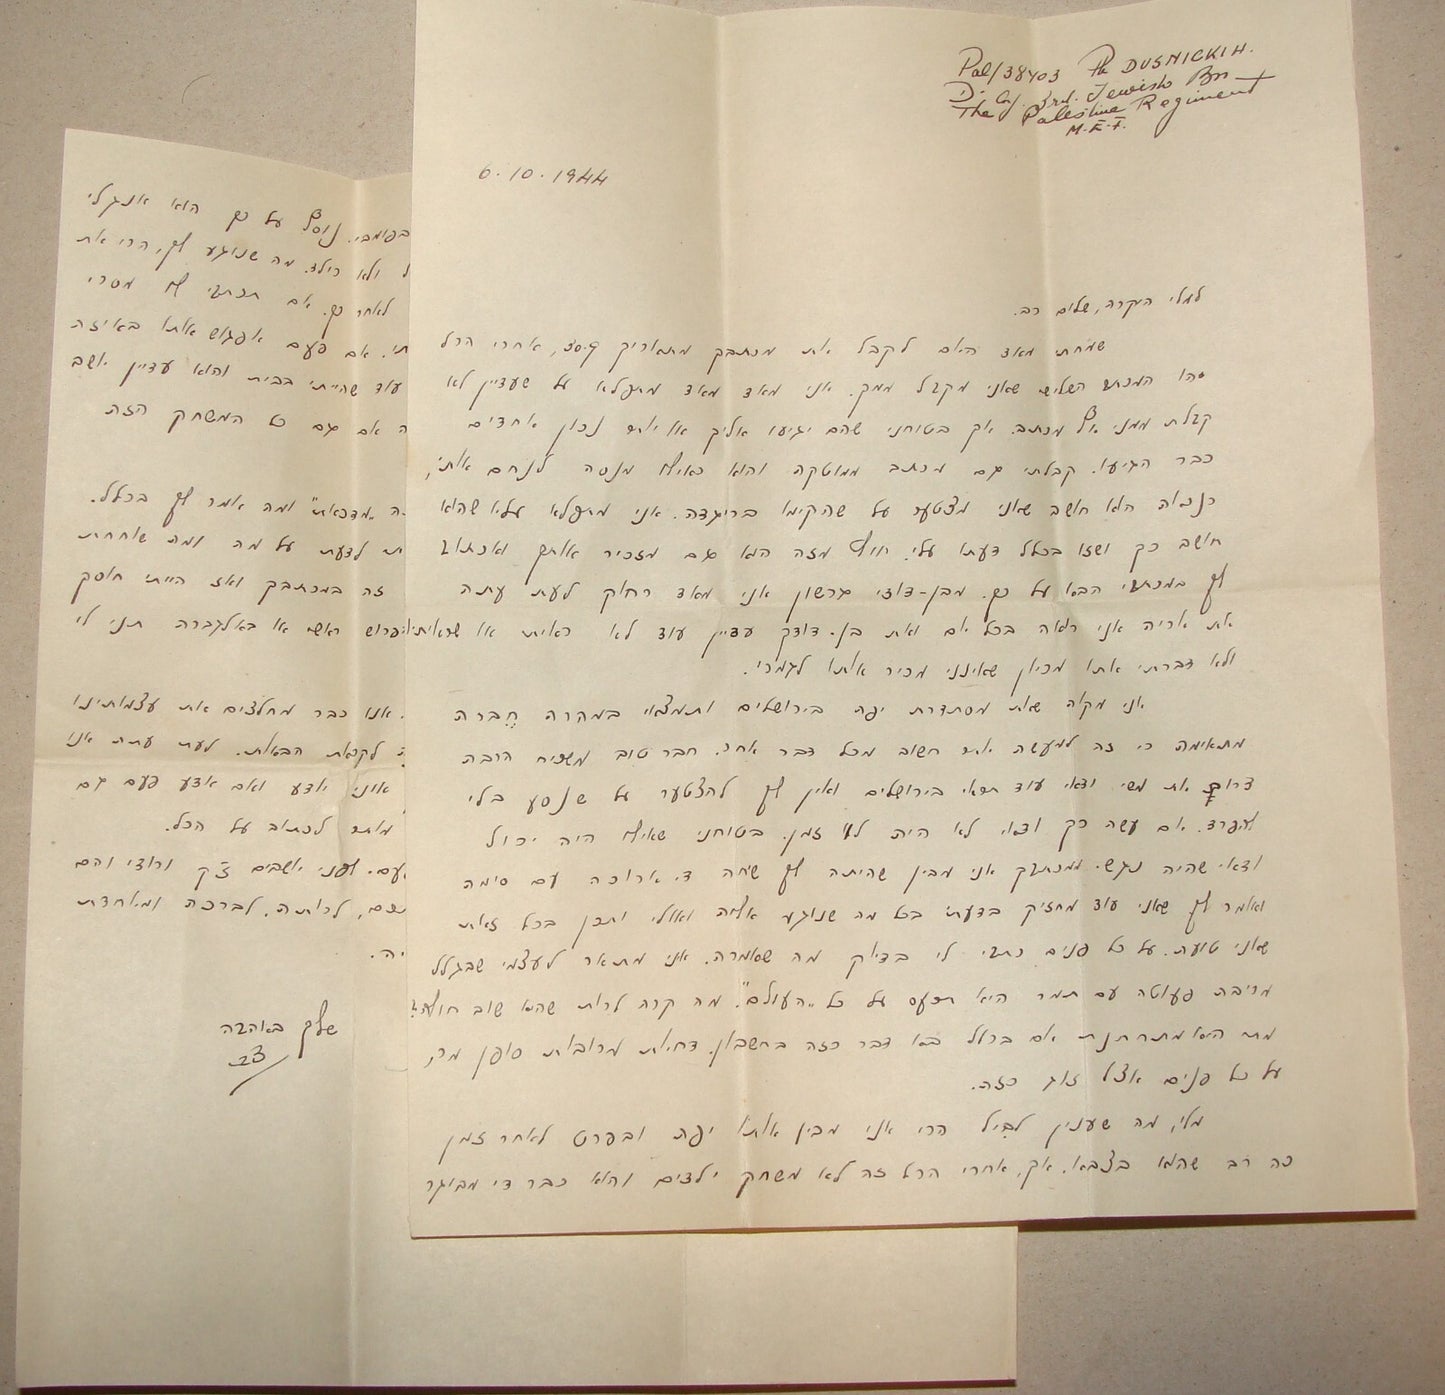 Pal/38403 Pte DUSNICKI H.
D. Coy. 3rd. Jewish Bn
The Palestine Regiment
M.E.F.
6.10.1944
למלי היקרה, שלום רב.
שמחתי מאד היום לקבל את מכתבך מתאריך אחרי הכל
זהו המכתב השלישי שאני מקבל ממך. אני מאד מאד מתפלא על שעדיין לא
קבלת ממני אף מכתב. אך בטוחני שהם יגיעו אליך או אולי נכון אחדים
כבר הגיעו. קבלתי גם מכתב ממוטקה והוא כאילו מנסה לנחם אותי,
כנראה הוא חושב שאני מצטער על שהקימו בריגדה. אני מתפלא עליו שהוא
חושב כך ושזו בכלל דעתו עלי. חוץ מזה הוא גם מזכיר אותך ואכתוב
לך במכתבי הבא על כך. מבן-דודי גרשון אני מאד רחוק לעת עתה
את אריה אני רואה בכל יום ואת בן-דודך עדיין עוד לא ראיתי או שראיתי
ולא דברתי אתו מכיון שאינני מכיר אותו לגמרי.
אני מקוה שאת מסתדרת יפה בירושלים ותמצאי במהרה חֶברה
מתאימה כי זה למעשה אולי חשוב מכל דבר אחר. חבר טוב משכיח הרבה
דרוך. את משה ודאי עוד תראי בירושלים ואין לך להצטער על שנסע בלי
להפרד. אם עשה כך ודאי לא היה לו זמן. בטוחני שאילו היה יכול
ודאי שהיה נגש. ממכתבך אני מבין שהיתה לך שיחה די ארוכה עם סימה
ואומר לך שאני עוד מחזיק בדעתי בכל מה שנוגע אליה ואולי יתכן בכל זאת
שאני טועה. על כל פנים כתבי לי בדיוק מה שאמרה. אני מתאר לעצמי שבגלל
מריבה פעוטה עם תמר היא תכעס על כל "העולם". מה קרה לרות שהיא שוב חולה?
מתי היא מתחתנת אם בכלל בא דבר כזה בחשבון. דחיות מרובות סופן מר,
על כל פנים אצל זוג כזה.
מלי, מה שענין לביל הרי אני מבין אותו יפה ובפרט לאחר זמן
כה רב שהוא בצבא. אך, אחרי הכל זה לא משחק ילדים והוא כבר די מבוגר
בפומבי. נוסף על כך הוא אנגלי
ולא ילד. מה שנוגע לך, הרי את
לאחר כך. אם תכתבי לו מסרי
אם פעם אפגוש אותו באיזה
עוד שהייתי בבית והוא עדיין יושב
אם גם כל המשחק הזה
"מדכאת" ומה אמר לך בכלל.
לדעת על מה ומה שוחחת
זה במכתבך ואז הייתי חוסך
פרוש ראשי או באלגברה תני לי
אנו כבר מחלצים את עצמותינו
לקראת הבאות. לעת עתה אני
אינני יודע ואם אדע פעם גם
מותר לכתוב על הכל.
לפני יושבים צ'ק ורודי והם
לרותה, לברכה ומיוחדת
שלך באהבה
צבי